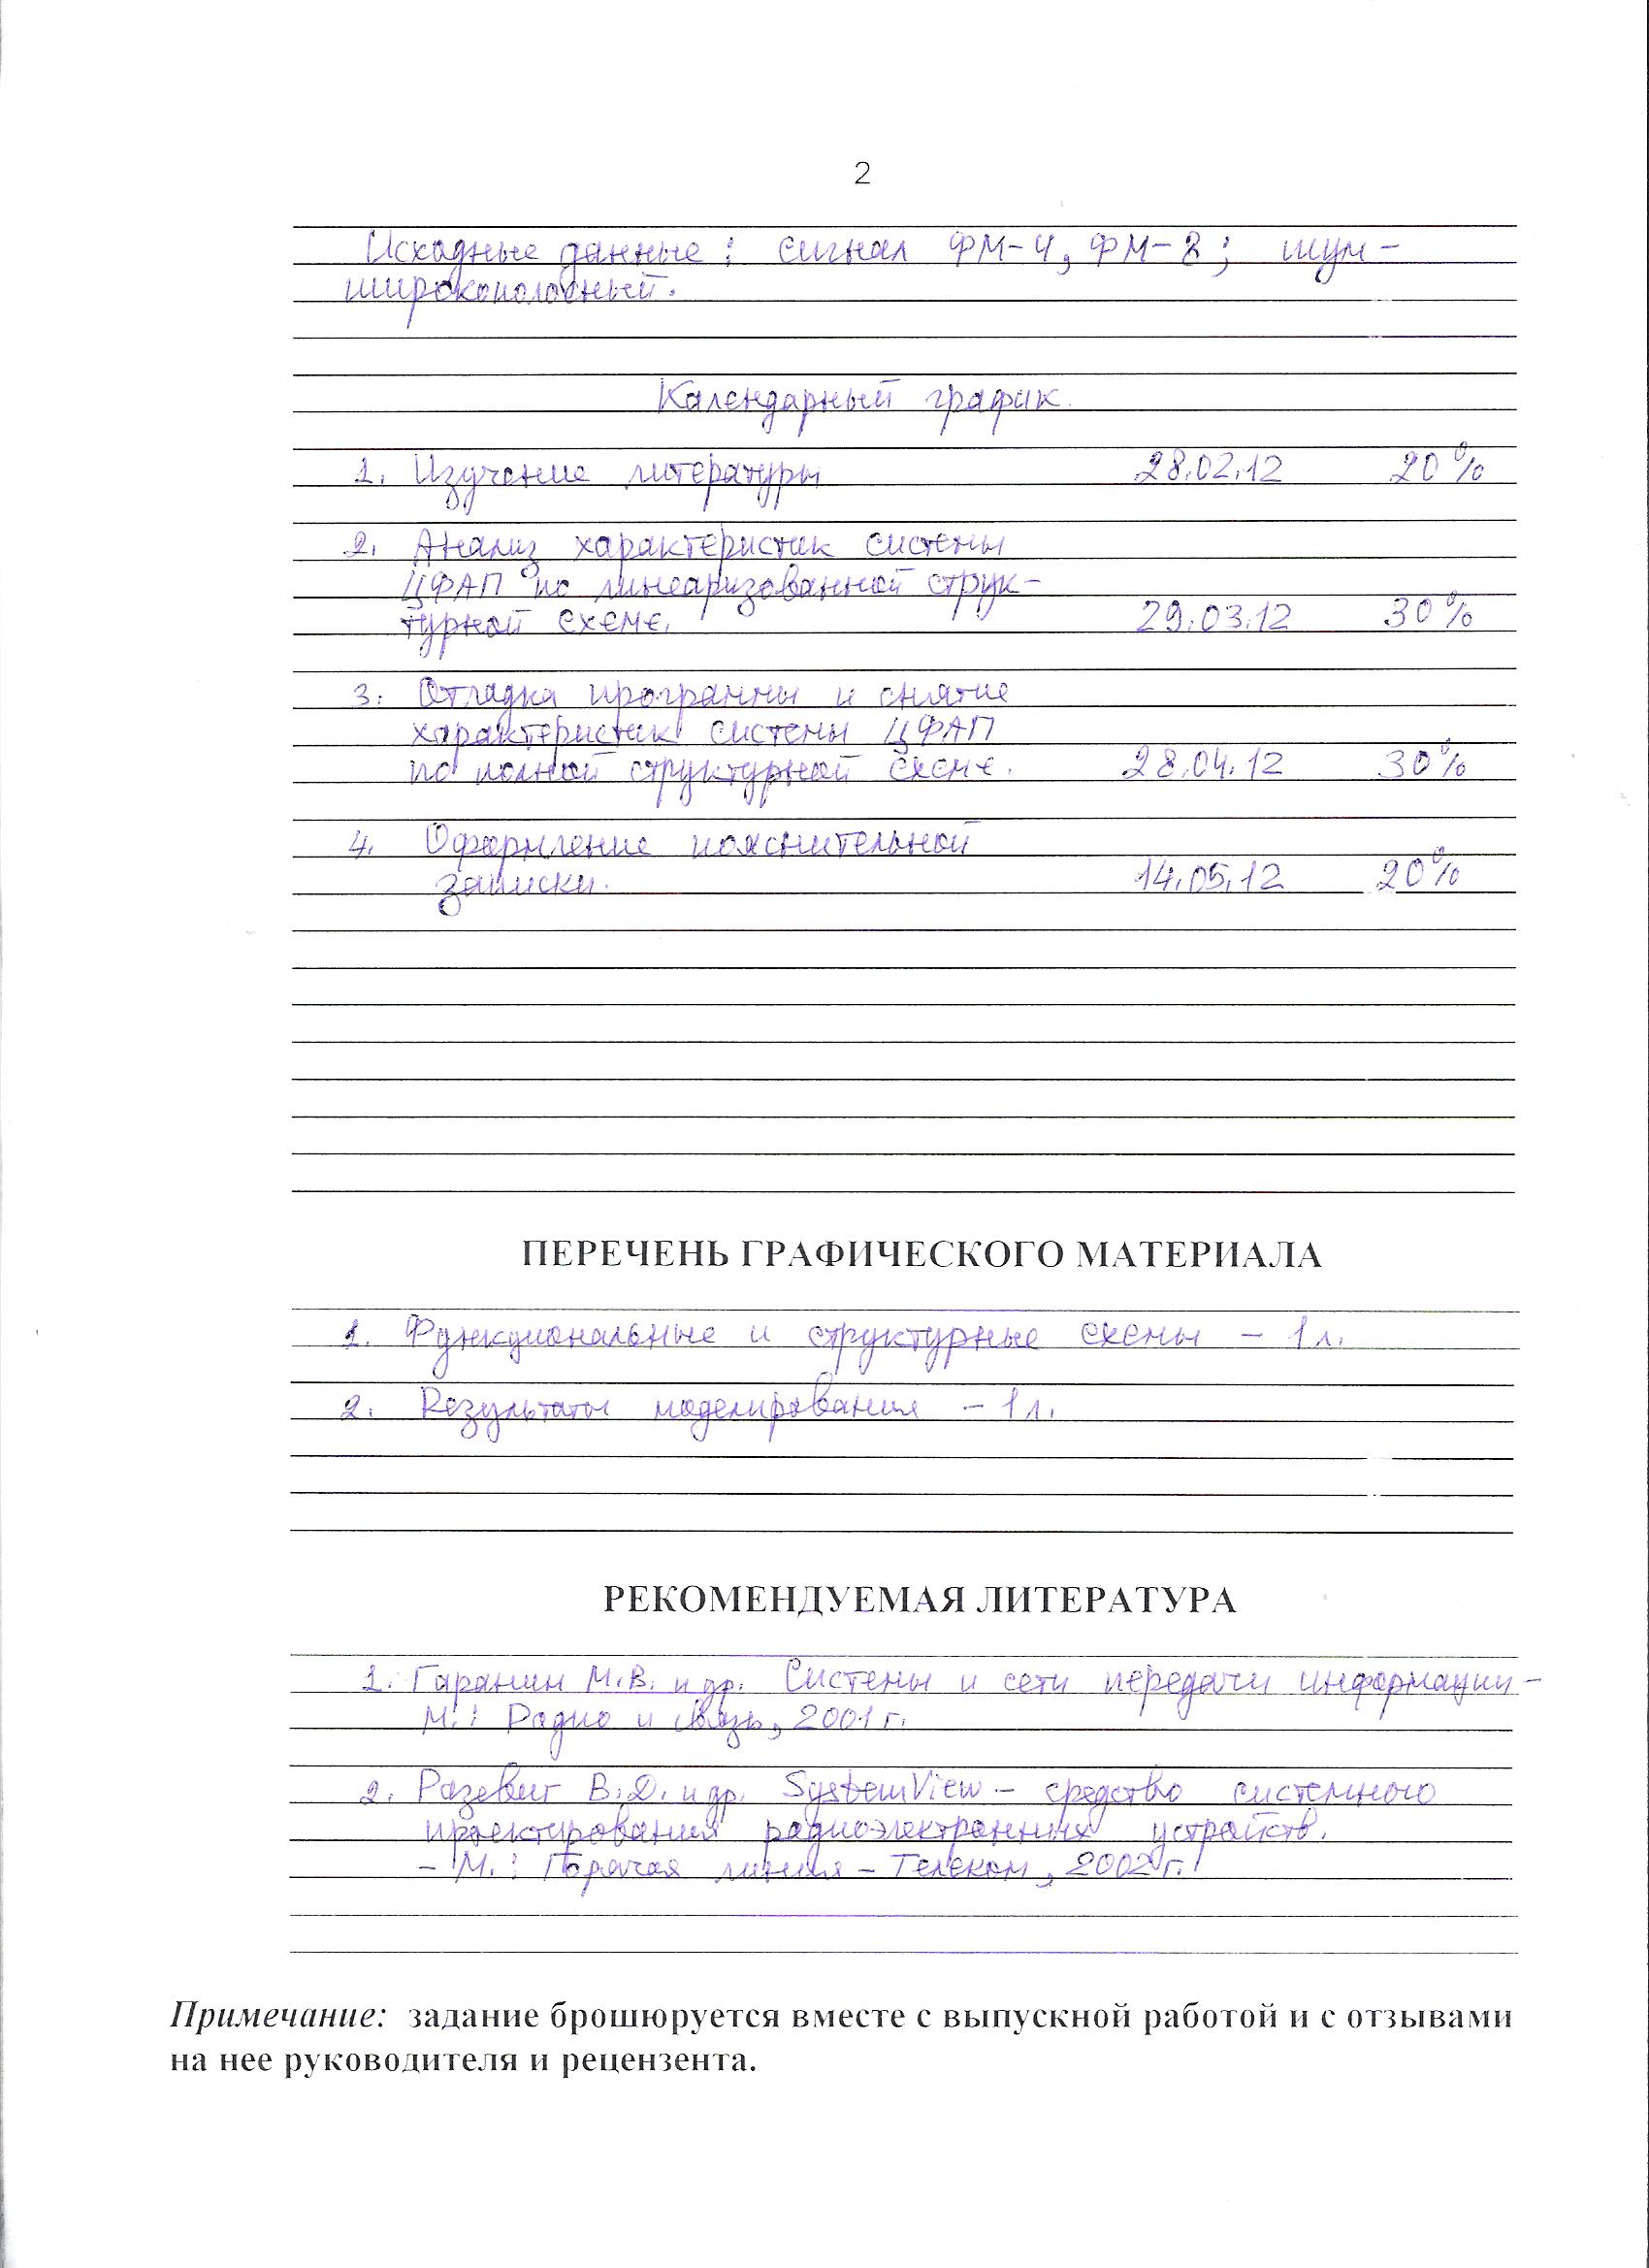 2
Исходные данные: сигнал ФМ-4, ФМ-8; шум -
широкополосный.
Календарный график.
1. Изучение литературы 28.02.12 20%
2. Анализ характеристик системы
ЦФАП по линеаризованной струк-
турной схеме. 29.03.12 30%
3. Отладка программы и снятие
характеристик системы ЦФАП
по полной структурной схеме. 28.04.12 30%
4. Оформление пояснительной
записки. 14.05.12 20%
ПЕРЕЧЕНЬ ГРАФИЧЕСКОГО МАТЕРИАЛА
1. Функциональные и структурные схемы - 1 л.
2. Результаты моделирования - 1 л.
РЕКОМЕНДУЕМАЯ ЛИТЕРАТУРА
1. Гаранин М.В. и др. Системы и сети передачи информации -
М.: Радио и связь, 2001 г.
2. Разевиг В.Д. и др. SystemView - средство системного
проектирования радиоэлектронных устройств.
- М.: Горячая линия - Телеком, 2002 г.
Примечание: задание брошюруется вместе с выпускной работой и с отзывами
на нее руководителя и рецензента.